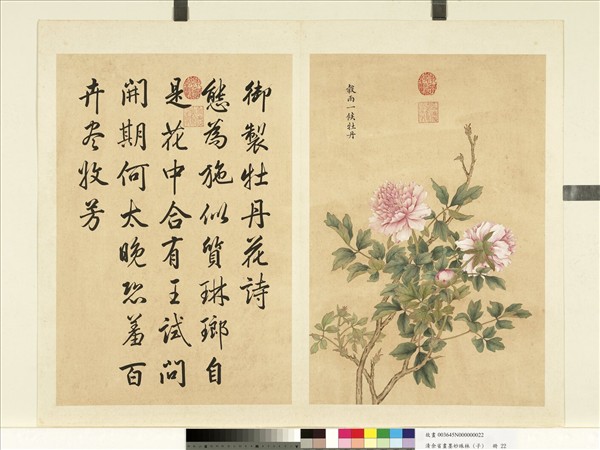 穀雨一候牡丹
御製牡丹花詩
態為施似質琳瑯自
是花中合有王試問
開期何太晚恐羞百
卉尽收芳
故畫 003645N000000022
清余省畫墨妙珠林（子） 冊 22